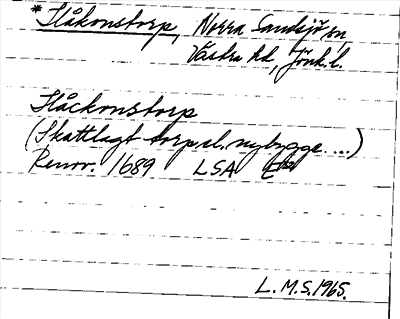 *Slåkonstorp, Norra Sandsjö sn
Västra hd, Jönk. l.
Slåckonstorp
(Skattlagt torp el. nybygge ...)
Renov. 1689 LSA
L.M.S. 1965.